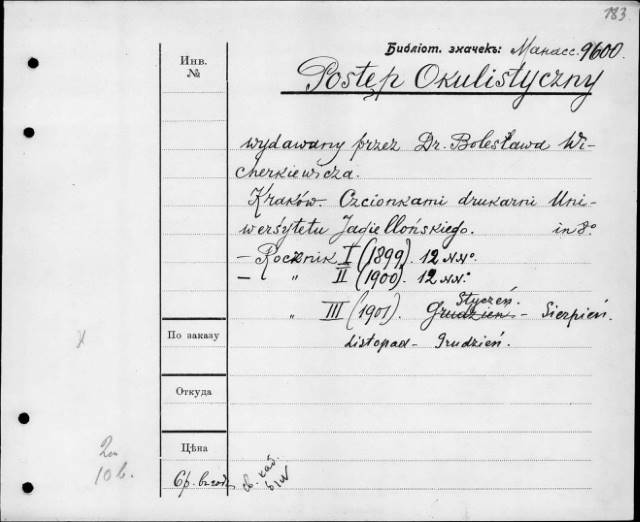 183.
Библіот. значекъ: Манасс. 9600.
Инв. №
Postęp Okulistyczny
wydawany przez Dr. Bolesława Wi-
cherkiewicza.
Kraków. Czcionkami drukarni Uni-
wersytetu Jagiellońskiego. in 8°
– Rocznik I (1899). 12 №№.
– " II (1900). 12 №№.
" III (1901). Grudzień Styczeń – Sierpień.
Listopad – Grudzień.
По заказу
Откуда
Цѣна
6 р. въ годъ
10 b.